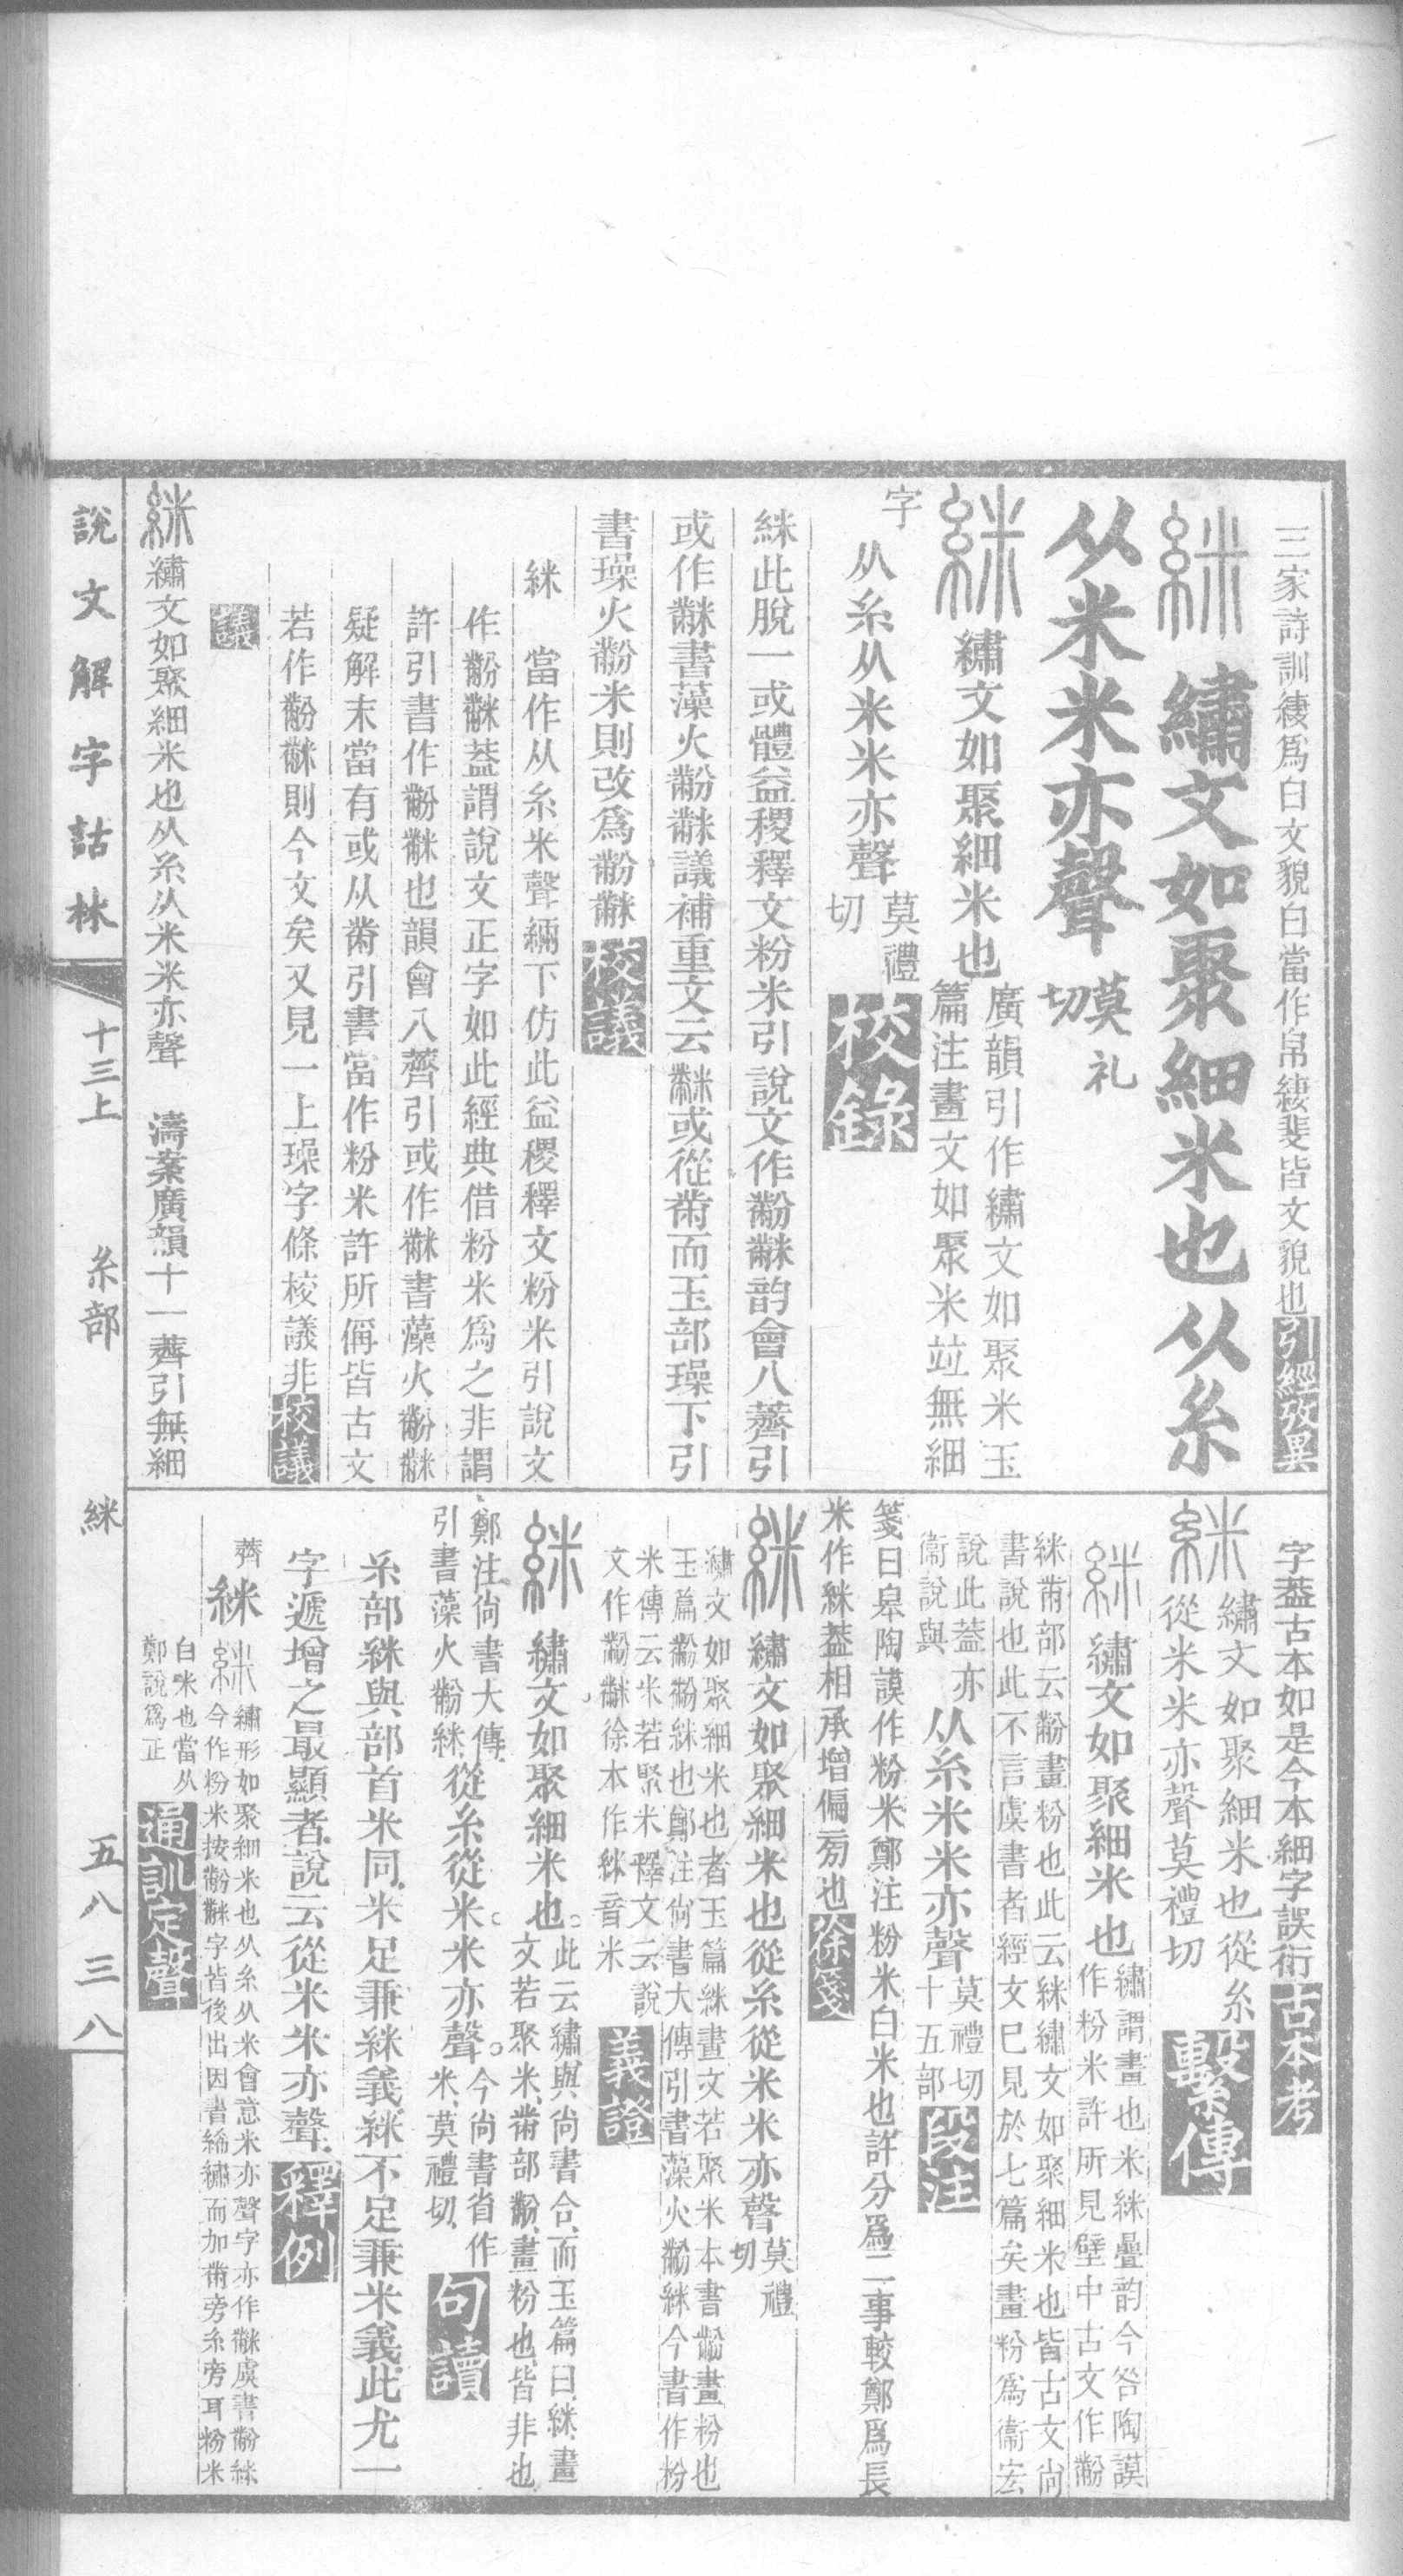 三家詩訓緀爲白文貌白當作帛緀斐皆文貌也引經攷異
絑 繡文如聚細米也从糸
从米米亦聲莫礼切
絑繡文如聚細米也廣韻引作繡文如聚米玉
篇注畫文如聚米竝無細
字 从糸从米米亦聲莫禮切校錄
絑此脫一或體益稷釋文粉米引說文作黺䋛韵會八薺引
或作䋛書藻火黺䋛議補重文云䋛或從黹而玉部璪下引
書璪火黺米則改爲黺䋛校議
絑 當作从糸米聲緉下仿此益稷釋文粉米引說文
作黺䋛葢謂說文正字如此經典借粉米爲之非謂
許引書作黺䋛也韻會八薺引或作䋛書藻火黺䋛
疑解末當有或从黹引書當作粉米許所偁皆古文
若作黺䋛則今文矣又見一上璪字條校議非校議
議
絑繡文如聚細米也从糸从米米亦聲 濤案廣韻十一薺引無細
字葢古本如是今本細字誤衍古本考
絑繡文如聚細米也從糸
從米米亦聲莫禮切繫傳
絑繡文如聚細米也繡謂畫也米絑疊韵今咎陶謨
作粉米許所見壁中古文作黺
絑黹部云黺畫粉也此云絑繡文如聚細米也皆古文尚
書說也此不言虞書者經文已見於七篇矣畫粉爲衞宏
說此葢亦
衞說與从糸米米亦聲莫禮切
十五部段注
箋曰皋陶謨作粉米鄭注粉米白米也許分爲二事較鄭爲長
米作絑葢相承增偏旁也徐箋
絑繡文如聚細米也從糸從米米亦聲莫禮切
繡文如聚細米也者玉篇絑畫文若聚米本書黺畫粉也
玉篇黺黺絑也鄭注尙書大傳引書藻火黺絑今書作粉
米傳云米若聚米釋文云說
文作黺䋛徐本作絑音米義證
絑繡文如聚細米也此云繡與尚書合而玉篇曰絑畫
文若聚米黹部黺畫粉也皆非也
鄭注尙書大傳
引書藻火黺絑從糸從米米亦聲今尙書省作
米莫禮切句讀
糸部絑與部首米同米足兼絑義絑不足兼米義此尤一
字遞增之最顯者說云從米米亦聲釋例
薺絑絑繡形如聚細米也从糸从米會意米亦聲字亦作䋛虞書黺絑
今作粉米按黺䋛字皆後出因書絺繡而加黹旁糸旁耳粉米
白米也當从
鄭說爲正通訓定聲
說文解字詁林 十三上 糸部 絑 五八三八